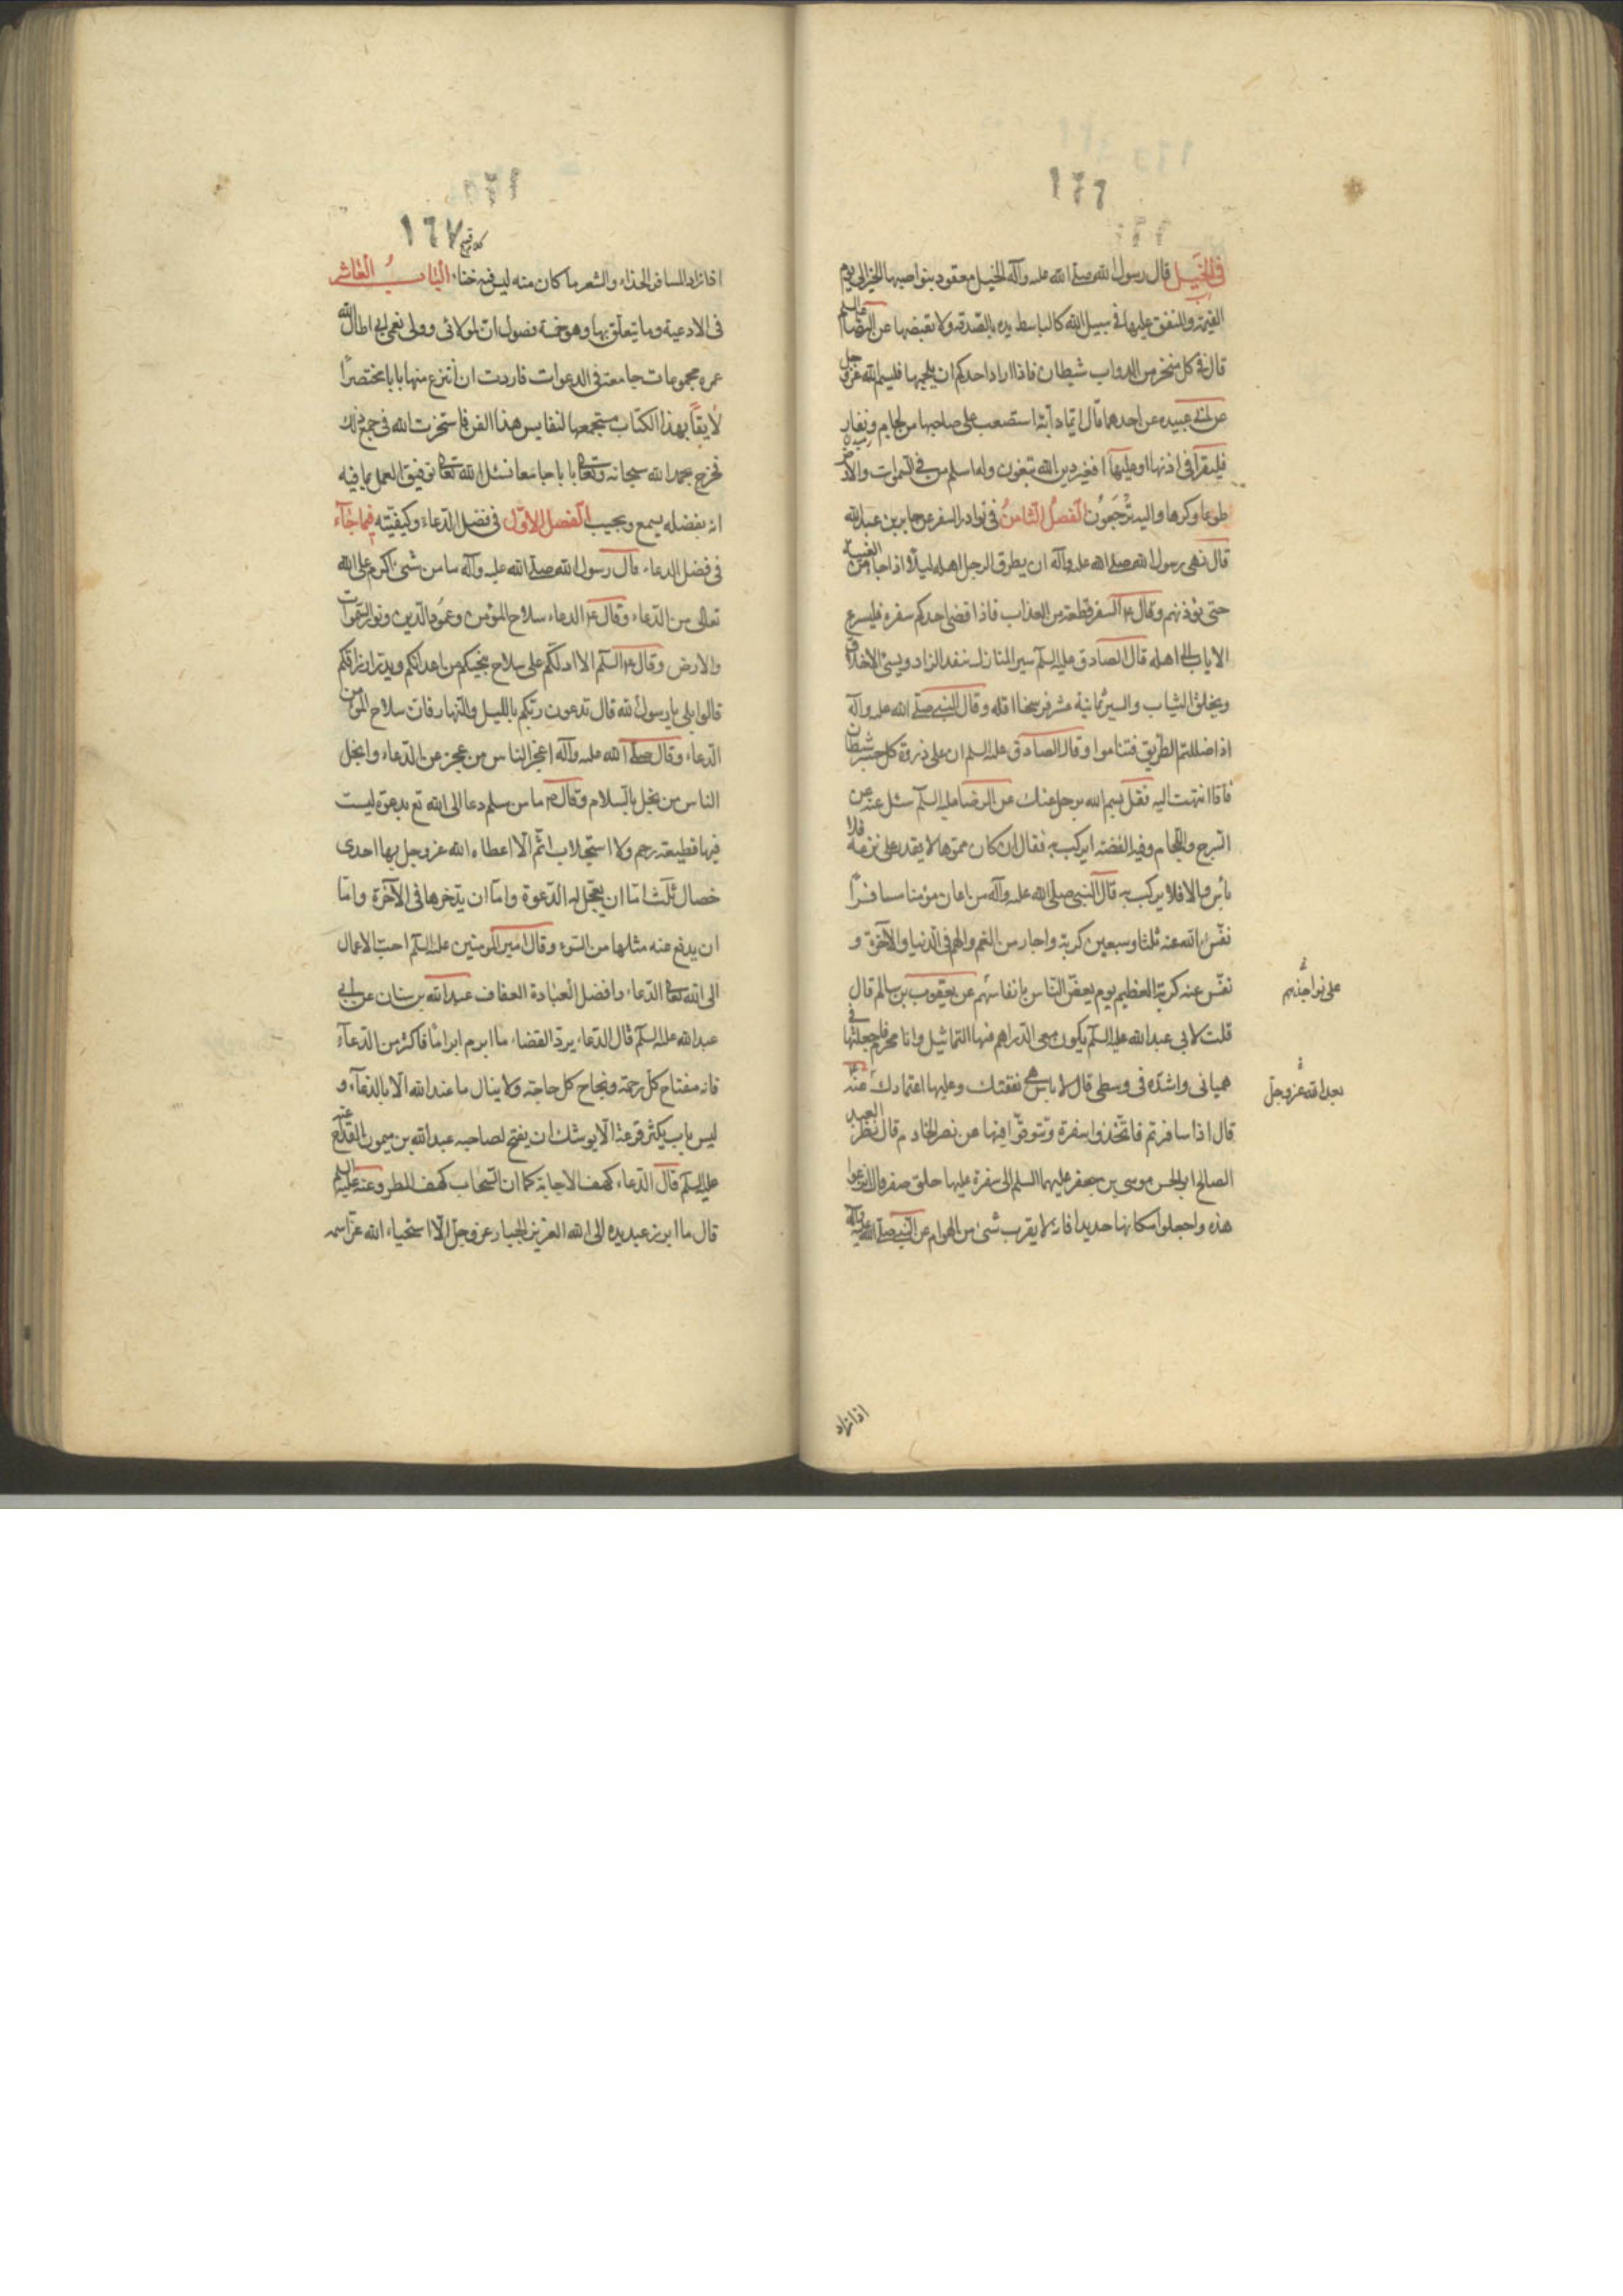 ١٦٦
فی الخیل قال رسول الله صلی الله علیه وآله الخیل معقود بنواصیها الخیر الی یوم
القیمة والمنفق علیها فی سبیل الله کالباسط یده بالصدقة ولا یقبضها عن الرضا علیه السلم
قال فی کل منخر من الدواب شیطان فاذا اراد احدکم ان یلجمها فلیسم الله عز وجل
عن ابی عبیده عن احدهما قال ایما دابة استصعب علی صاحبها من لجام ونفار
فلیقرا فی اذنها او علیها افغیر دین الله تبغون وله اسلم من فی السموات والارض
طوعا وکرها والیه ترجعون الفصل الثامن فی نوادر السفر عن جابر بن عبد الله
قال نهی رسول الله صلی الله علیه وآله ان یطرق الرجل اهله لیلا اذا جاء من الغیبة
حتی یؤذنهم وقال ع السفر قطعة من العذاب فاذا قضی احدکم سفره فلیسرع
الایاب الی اهله قال الصادق علیه السلم سیر المنازل ینفد الزاد ویسئ الاخلاق
ویخلق الثیاب والسیر ثمانیة عشر فرسخا اقله وقال النبی صلی الله علیه وآله
اذا ضللتم الطریق فتیامنوا وقال الصادق علیه السلم ان علی ذروة کل جسر شیطان
فاذا انتهیت الیه فقل بسم الله یرحل عنك عن الرضا علیه السلم سئل عنه عن
السرج واللجام وفیه الفضة ایرکب به فقال ان کان مموها لا یقدر علی نزعه فلا
بأس والا فلا یرکب به قال النبی صلی الله علیه وآله من اعان مؤمنا مسافرا
نفس الله عنه ثلثا وسبعین کربة واجاره من الغم والهم فی الدنیا والآخرة و
نفس عنه کربه العظیم یوم یعض الناس بانفاسهم عن یعقوب بن سالم قال
قلت لابی عبد الله علیه السلم یکون معی الدراهم فیها التماثیل وانا محرم فاجعلها فی
همیانی واشده فی وسطی قال لا باس هی نفقتك وعلیها اعتمادك عنه ع
قال اذا سافرتم فاتخذوا سفرة وتنوقوا فیها عن نصر الخادم قال نظر العبد
الصالح ابو الحسن موسی بن جعفر علیهما السلم الی سفرة علیها حلق صفر فقال انزعوا
هذه واجعلوا مکانها حدیدا فانه لا یقرب شئ من الهوام عن النبی صلی الله علیه وآله
علی نواجذهم
بعد الله عز وجل
اذا زاد
١٦٧
اذا زاد المسافر الحداء والشعر ما کان منه لیس فیه خناء الباب العاشر
فی الادعیة وما یتعلق بها وهو خمسة فصول ان لمولائی وولی نعمی ابی اطال الله
عمره مجموعات جامعة فی الدعوات فاردت ان انتزع منها بابا مختصرا
لایقا بهذا الکتاب مستجمعها لنفایس هذا الفن فاستخرت الله فی جمع ذلك
فخرج بحمد الله سبحانه وتعالی بابا جامعا نسئل الله تعالی توفیق العمل بما فیه
انه بفضله یسمع ویجیب الفصل الاول فی فضل الدعاء وکیفیته فیما جآء
فی فضل الدعاء قال رسول الله صلی الله علیه وآله ما من شئ اکرم علی الله
تعالی من الدعاء وقال ع الدعاء سلاح المؤمن وعمود الدین ونور السموات
والارض وقال ع السلم الا ادلکم علی سلاح ینجیکم من اعدائکم ویدر ارزاقکم
قالوا بلی یا رسول الله قال تدعون ربکم باللیل والنهار فان سلاح المؤمن
الدعاء وقال صلی الله علیه وآله اعجز الناس من عجز عن الدعاء وابخل
الناس من بخل بالسلام وقال ص ما من مسلم دعا الی الله تع بدعوة لیست
فیها قطیعة رحم ولا استجلاب اثم الا اعطاه الله عز وجل بها احدی
خصال ثلث اما ان یعجل له الدعوة واما ان یدخرها فی الآخرة واما
ان یدفع عنه مثلها من السوء وقال امیر المومنین علیه السلم احب الاعمال
الی الله تعالی الدعاء وافضل العبادة العفاف عبد الله بن سنان عن ابی
عبد الله علیه السلم قال الدعاء یرد القضاء ما ابرم ابراما فاکثر من الدعآء
فانه مفتاح کل رحمة ونجاح کل حاجة ولا ینال ما عند الله الا بالدعآء و
لیس باب یکثر قرعه الا یوشك ان یفتح لصاحبه عبد الله بن میمون القداح عنه
علیه السلم قال الدعاء کهف الاجابة کما ان السحاب کهف المطر وعنه علیه السلم
قال ما ابرز عبد یده الی الله العزیز الجبار عز وجل الا استحیاء الله عز اسمه